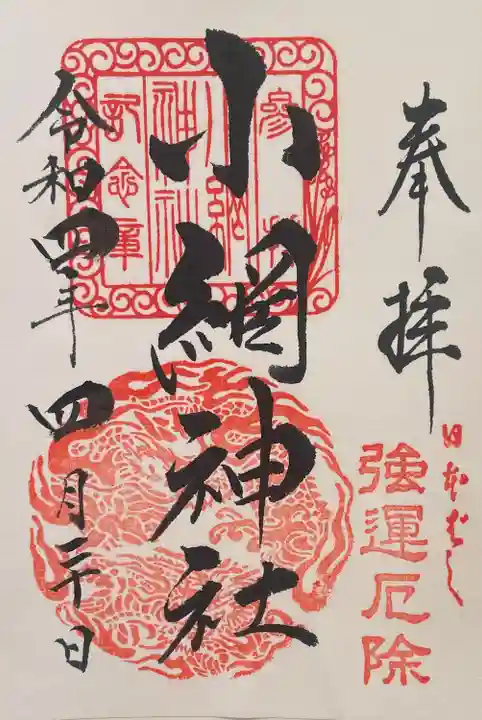 奉拝
日本ばし
強運厄除
小網神社
参拝
小網
神社
記念章
令和四年四月二十日